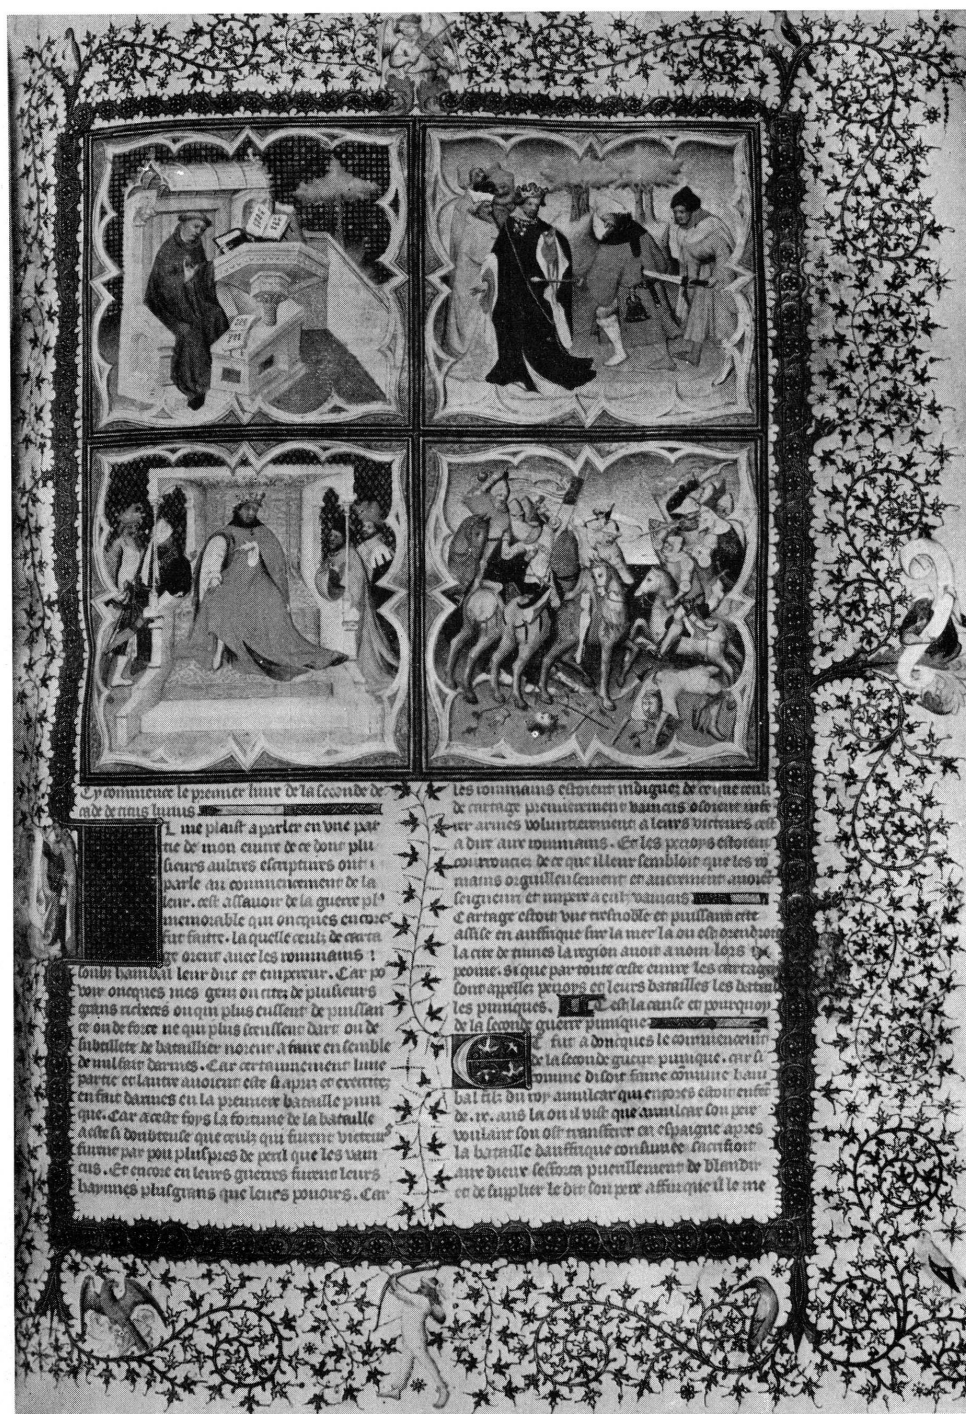 Cy commence le premier livre de la seconde de
cade de titus livius
Il me plaist a parler en une par
tie de mon euvre de ce dont plu
sieurs aultres escriptures ont
parle au commencement de la
leur. cest assavoir de la guerre pl
memorable qui oncques encores
fut faitte. la quelle ceulz de carta
ge orent avec les rommains
soubz hanibal leur duc et empereur. Car po
voir oncques mes gens ou citez de plusieurs
grans richeces ou qui plus eussent de puissan
ce ou de force ne qui plus sceussent dart ou de
subtillete de bataillier norent a faire ensemble
de tail fait darmes. Car certainement lune
partie et lautre avoient este si apris et exercitez
en fait darmes en la premiere bataille puni
que. Car a ceste foys la fortune de la bataille
a este si doubteuse que ceulz qui furent victeurs
furent par pou plus pres de peril que les vain
cus. Et encore en leurs guerres furent leurs
haynnes plus grans que leurs povoirs. Car
les rommains estoient indignez de ce que ceulz
de cartage premierement vaincus osoient
armes voluntierement a leurs victeurs cest
a dire aux rommains. Et les penoys estoient
courroucies de ce que il leur sembloit que les ro
mains orguilleusement et averement avoient
seigneurie et empire a eulz vaincus
Cartage estoit une tresnoble et puissant cite
assise en auffrique sur la mer la ou est orendroit
la cite de tunes la region avoit a nom lors
peonie. si que par toute ceste euvre les cartage
sont appellez penoys et leurs batailles les batail
les puniques. Cest la cause et pourquoy
de la seconde guerre punique
Ce fut adoncques le commencement
de la seconde guerre punique. car si
comme disoit fame commune hani
bal filz du roy amilcar qui encores estoit enfant
de .ix. ans la ou il vist que amilcar son pere
voulant son ost transferer en espaigne apres
la bataille dauffrique consumee sacrifioit
aux dieux sefforca puerillement de blandir
et de supplier le dit son pere affin que il le me